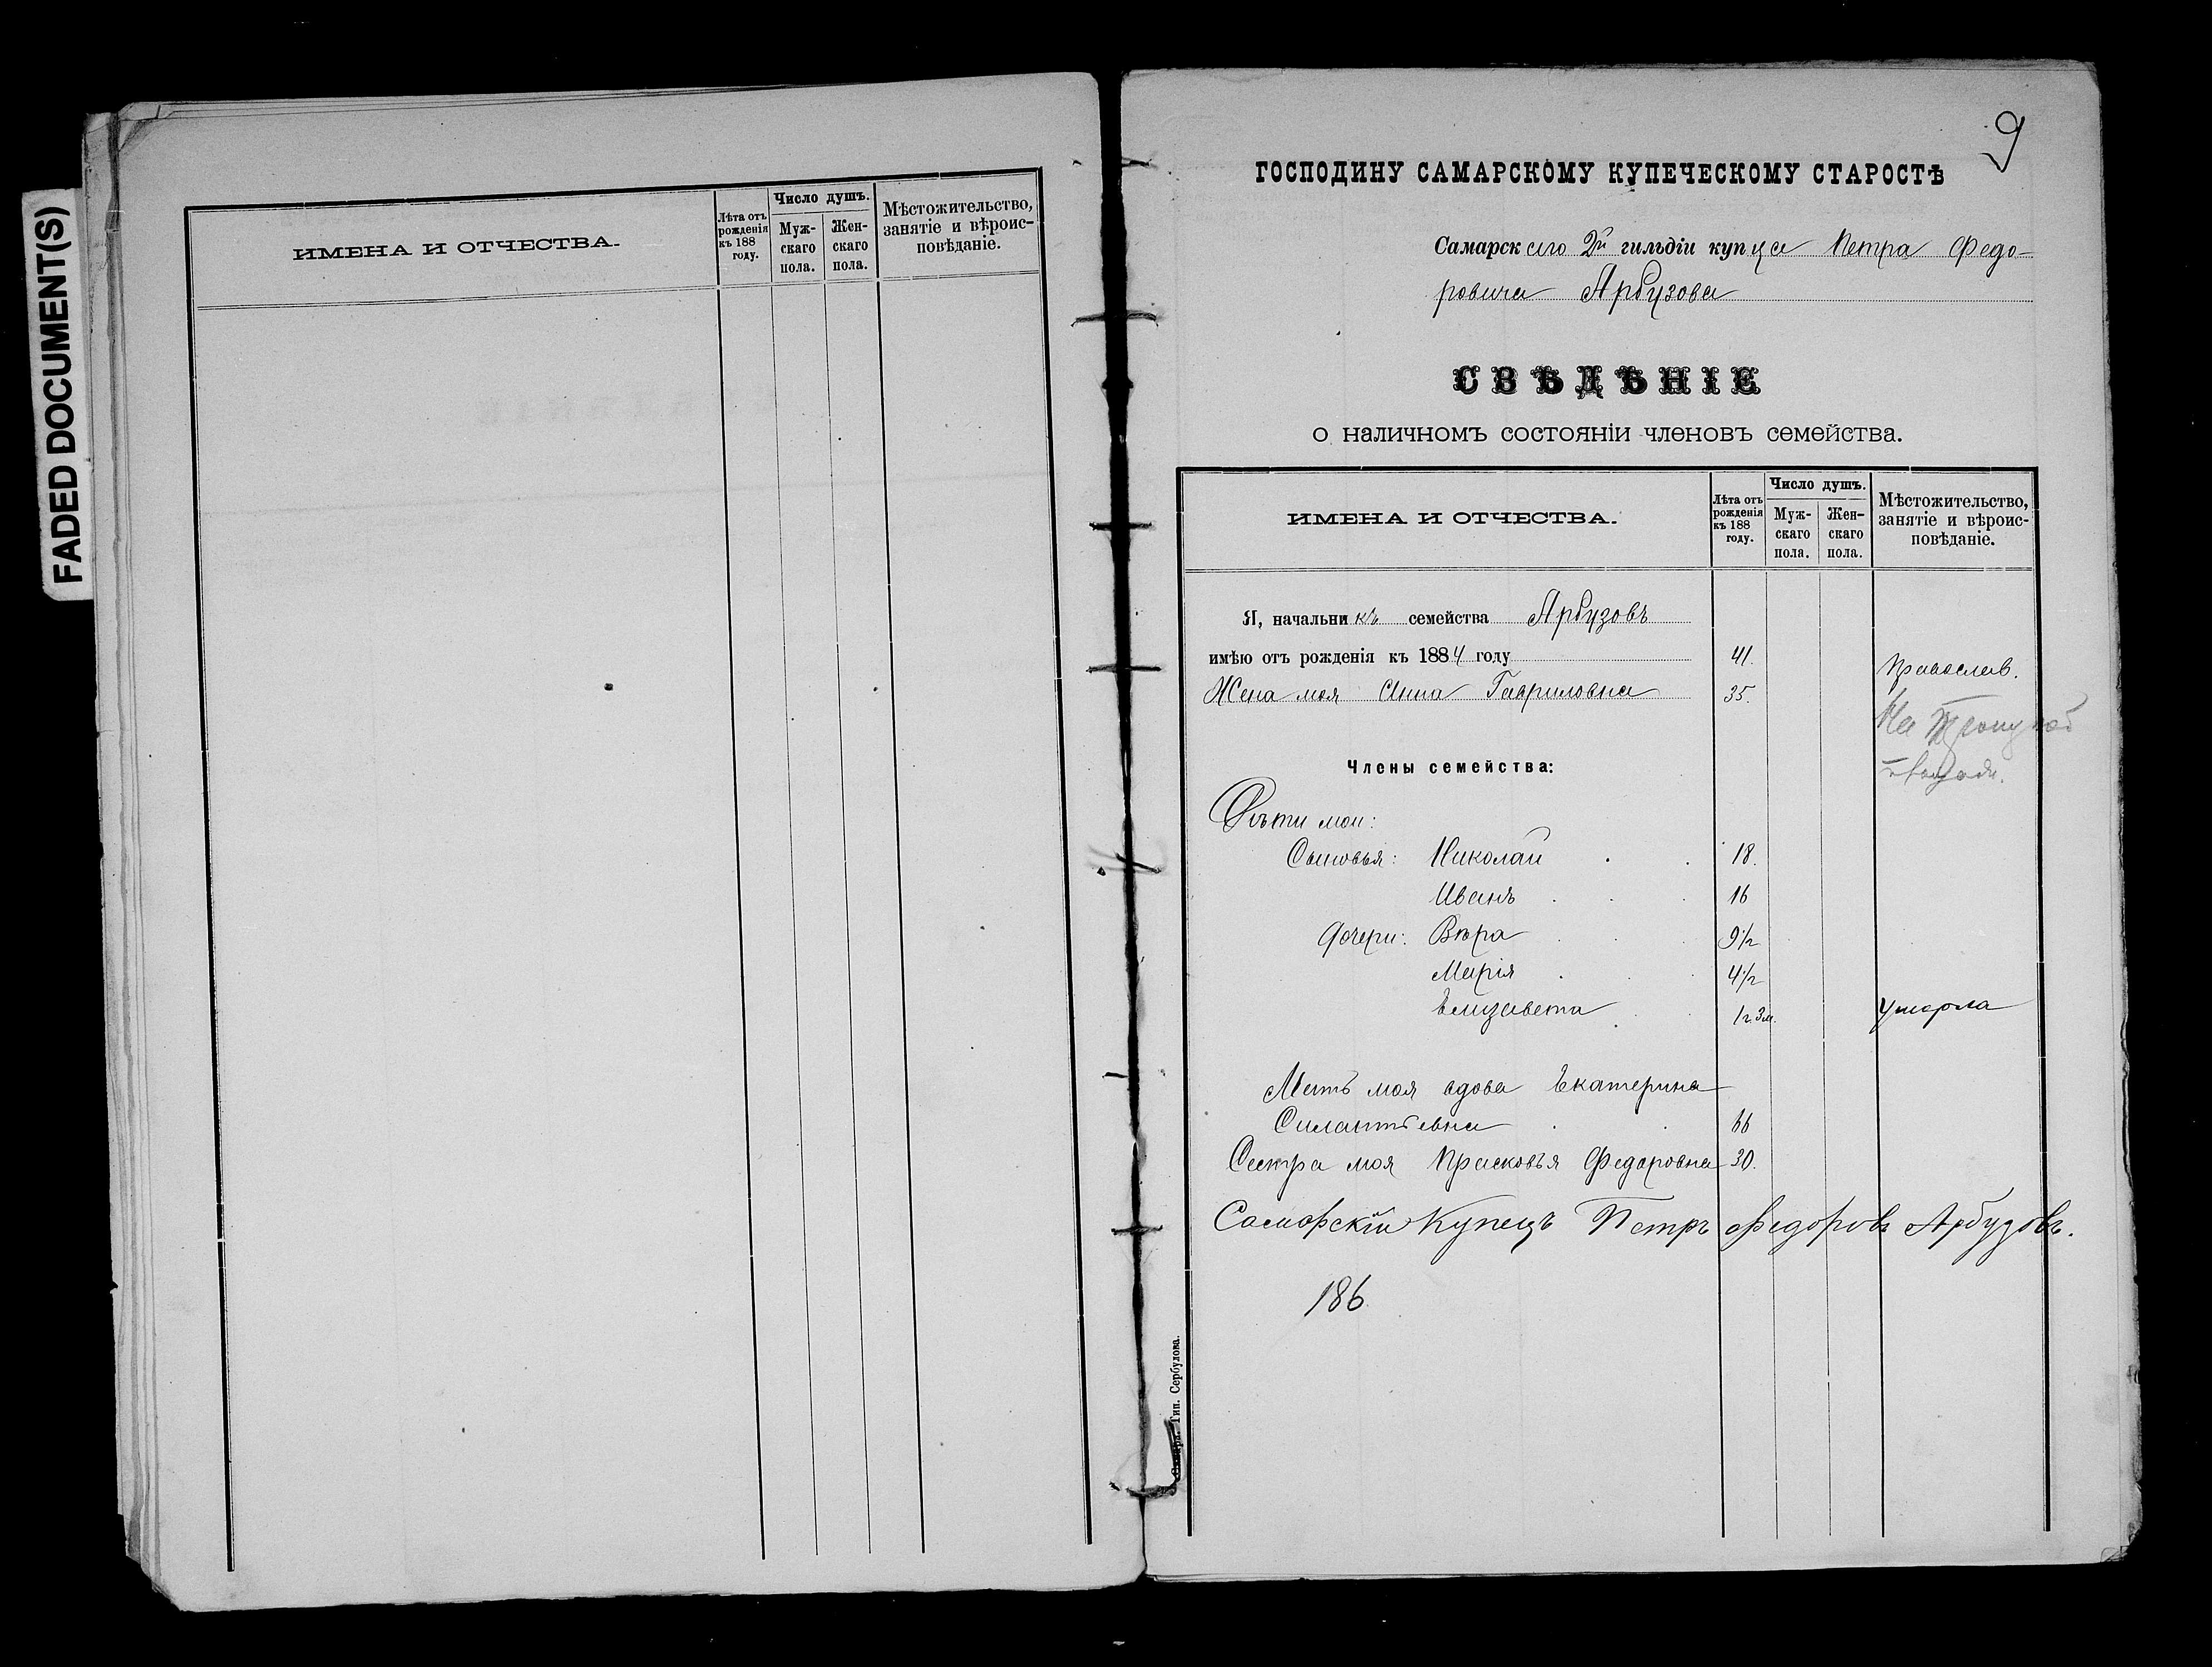 FADED DOCUMENT(S)
ИМЕНА И ОТЧЕСТВА.
Лѣта отъ
рожденія
къ 188
году.
Число душъ.
Муж-
скаго
пола.
Жен-
скаго
пола.
Мѣстожительство,
занятіе и вѣроис-
повѣданіе.
9
ГОСПОДИНУ САМАРСКОМУ КУПЕЧЕСКОМУ СТАРОСТѢ
Самарскаго 2й гильдіи купца Петра Федо-
ровича Арбузова
СВѢДѢНІЕ
о наличномъ состояніи членовъ семейства.
ИМЕНА И ОТЧЕСТВА.
Лѣта отъ
рожденія
къ 188
году.
Число душъ.
Муж-
скаго
пола.
Жен-
скаго
пола.
Мѣстожительство,
занятіе и вѣроис-
повѣданіе.
Я, начальникъ семейства Арбузовъ
имѣю отъ рожденія къ 1884 году 41. Православ.
Жена моя Анна Гавриловна 35.
На
Члены семейства:
Дѣти мои:
Сыновья: Николай . . 18.
Иванъ . . . 16
Дочери: Вѣра . . . 9 1/2
Марія . . . 4 1/2
Елизавета . . 1 г. 3 м. умерла
Мать моя вдова Екатерина
Силантьевна . . 66
Сестра моя Прасковья Федоровна 30.
Самарскій Купецъ Петръ Федоровъ Арбузовъ.
186
Самара. Тип. Сербулова.